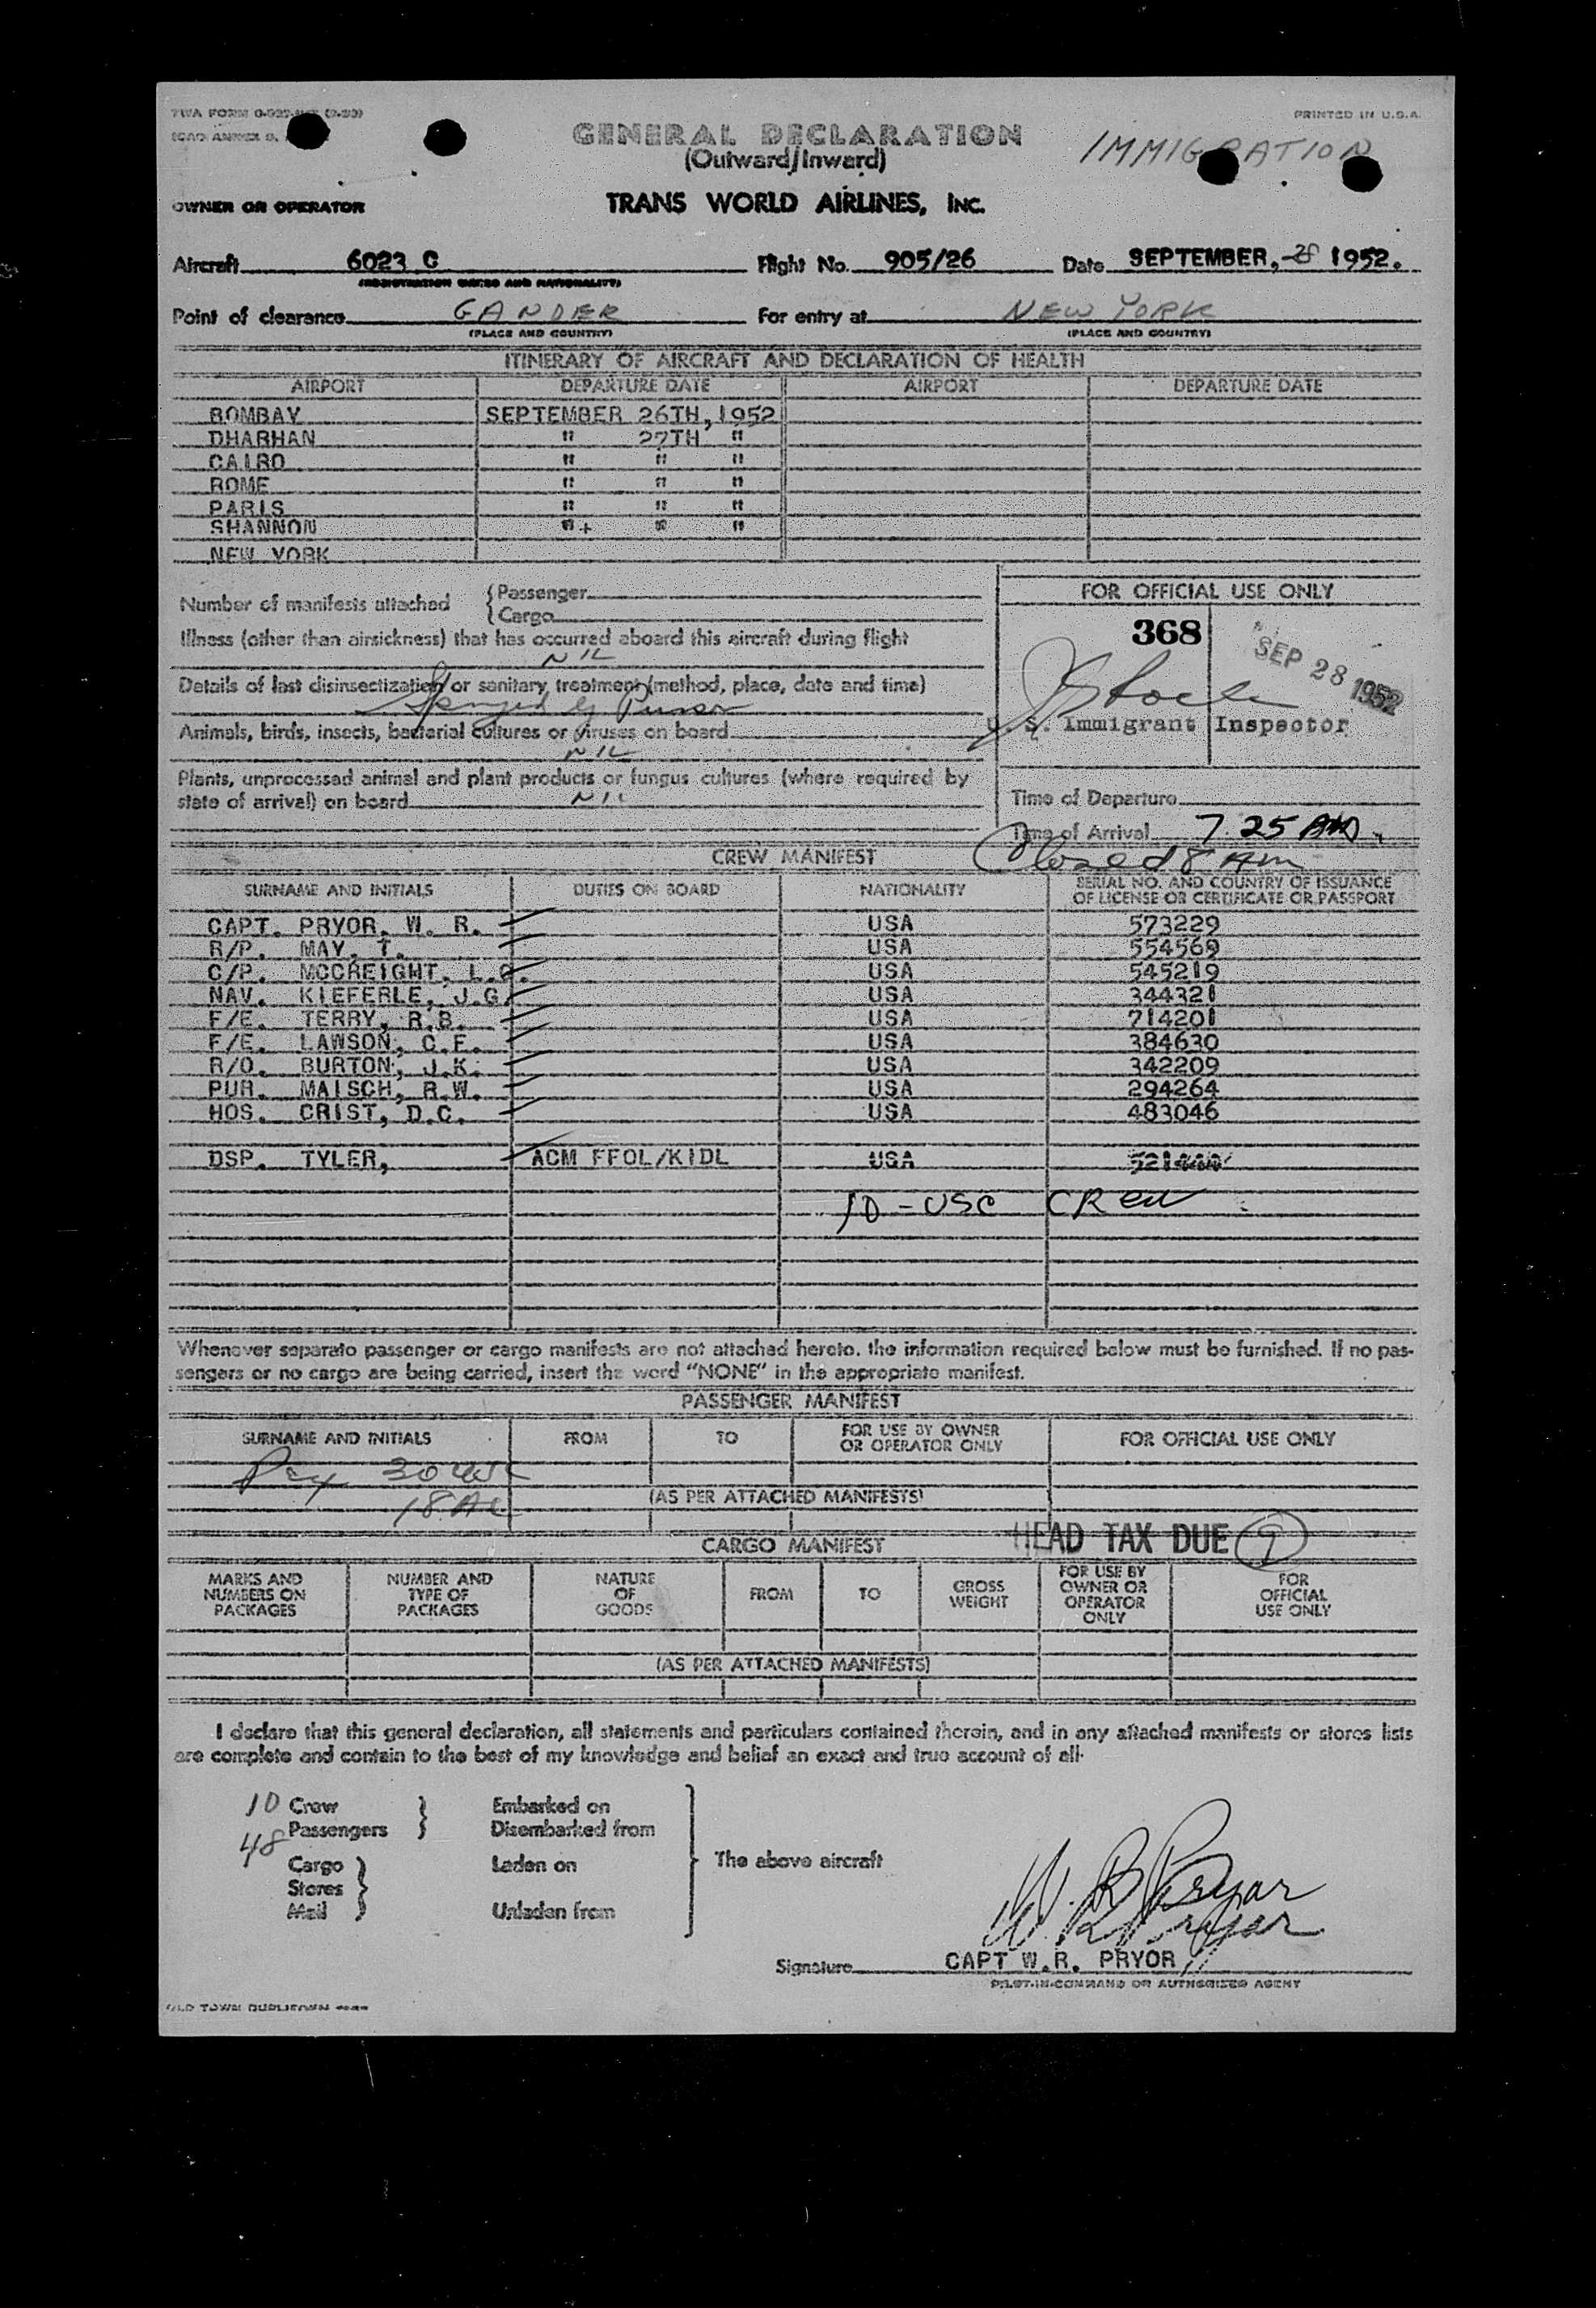 PRINTED IN U.S.A.
GENERAL DECLARATION
(Outward/Inward)
IMMIGRATION
OWNER OR OPERATOR
TRANS WORLD AIRLINES, INC.
Aircraft 6023 C Flight No. 905/26 Date SEPTEMBER, 28 1952.
(REGISTRATION MARKS AND NATIONALITY)
Point of clearance GANDER For entry at NEW YORK
(PLACE AND COUNTRY) (PLACE AND COUNTRY)
ITINERARY OF AIRCRAFT AND DECLARATION OF HEALTH
AIRPORT DEPARTURE DATE AIRPORT DEPARTURE DATE
BOMBAY SEPTEMBER 26TH, 1952
DHARHAN " 27TH "
CAIRO " " "
ROME " " "
PARIS " " "
SHANNON " " "
NEW YORK
Number of manifests attached {Passenger
{Cargo
FOR OFFICIAL USE ONLY
Illness (other than airsickness) that has occurred aboard this aircraft during flight
NIL
368
SEP 28 1952
Details of last disinsectization or sanitary treatment (method, place, date and time)
U. S. Immigrant Inspector
Animals, birds, insects, bacterial cultures or viruses on board
NIL
Plants, unprocessed animal and plant products or fungus cultures (where required by
state of arrival) on board NIL
Time of Departure
Time of Arrival 7 25 AM
Closed 8 AM
CREW MANIFEST
SURNAME AND INITIALS DUTIES ON BOARD NATIONALITY SERIAL NO. AND COUNTRY OF ISSUANCE
OF LICENSE OR CERTIFICATE OR PASSPORT
CAPT. PRYOR, W. R. USA 573229
R/P. MAY, T. USA 554569
C/P. MCCREIGHT, L.C. USA 545219
NAV. KIEFERLE, J.G. USA 344321
F/E. TERRY, R.B. USA 714201
F/E. LAWSON, C.F. USA 384630
R/O. BURTON, J.K. USA 342209
PUR. MAISCH, R.W. USA 294264
HOS. CRIST, D.C. USA 483046
DSP. TYLER, ACM FFOL/KIDL USA
10 - USC CREW
Whenever separate passenger or cargo manifests are not attached hereto, the information required below must be furnished. If no pas-
sengers or no cargo are being carried, insert the word "NONE" in the appropriate manifest.
PASSENGER MANIFEST
SURNAME AND INITIALS FROM TO FOR USE BY OWNER
OR OPERATOR ONLY FOR OFFICIAL USE ONLY
Pax 30 USC
18 AL
(AS PER ATTACHED MANIFESTS)
HEAD TAX DUE 9
CARGO MANIFEST
MARKS AND
NUMBERS ON
PACKAGES
NUMBER AND
TYPE OF
PACKAGES
NATURE
OF
GOODS
FROM
TO
GROSS
WEIGHT
FOR USE BY
OWNER OR
OPERATOR
ONLY
FOR
OFFICIAL
USE ONLY
(AS PER ATTACHED MANIFESTS)
I declare that this general declaration, all statements and particulars contained therein, and in any attached manifests or stores lists
are complete and contain to the best of my knowledge and belief an exact and true account of all
10 Crew } Embarked on
48 Passengers } Disembarked from
Cargo } Laden on The above aircraft
Stores
Mail } Unladen from
W. R. Pryor
W. R. Pryor
Signature CAPT W.R. PRYOR
PILOT-IN-COMMAND OR AUTHORIZED AGENT